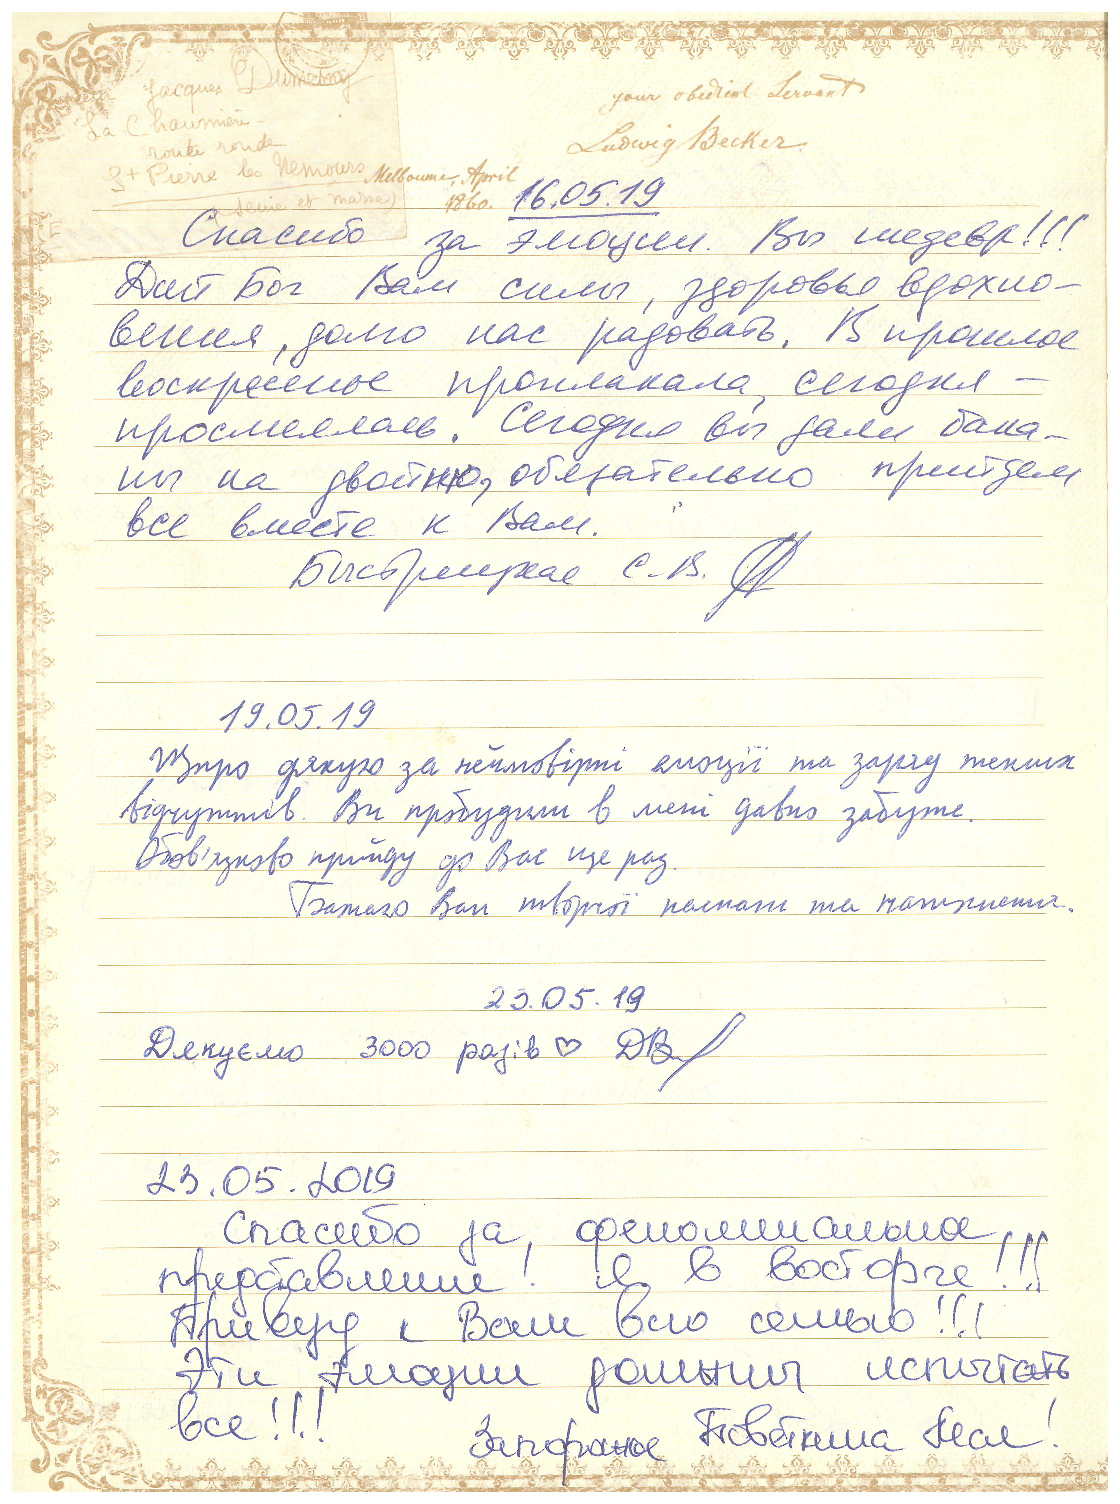 Jacques Dumesny
La Chaumière
route ronde
St Pierre les Nemours
(Seine et marne)
your obedient Servant
Ludwig Becker.
Melbourne, April
1860.
16.05.19
Спасибо за эмоции. Вы шедевр!!!
Дай Бог Вам силы, здоровья вдохно-
вения, долго нас радовать. В прошлое
воскресенье проплакала, сегодня -
просмеялась. Сегодня вы дали бана-
ны на двойню, обязательно прийдем
все вместе к Вам.
Быстрицкая С.В.
19.05.19
Щиро дякую за неймовірні емоції та заряд теплих
відчуттів. Ви пробудили в мені давно забуте.
Обов'язково прийду до Вас ще раз.
Бажаю Вам творчої наснаги та натхнення.
23.05.19
Дякуємо 3000 разів ♡
23.05.2019
Спасибо за, феноминальное,
представление! Я в восторге!!!
Привезу к Вам всю семью!!!
Эти эмоции должны испытать
все!!!
Запорожье